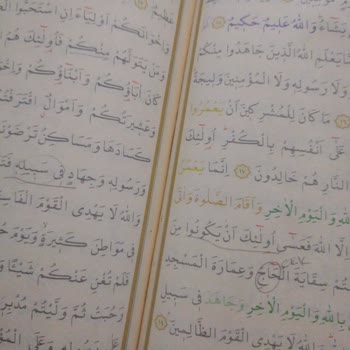 يَشَاءُ وَاللّٰهُ عَلِيمٌ حَكِيمٌ ﴿١٥﴾
يَعْلَمِ اللّٰهُ الَّذِينَ جَاهَدُوا مِنْكُمْ
وَلَا رَسُولِهِ وَلَا الْمُؤْمِنِينَ وَلِيجَةً
﴿١٦﴾ مَا كَانَ لِلْمُشْرِكِينَ أَنْ يَعْمُرُوا
عَلَى أَنْفُسِهِمْ بِالْكُفْرِ أُولَئِكَ
النَّارِ هُمْ خَالِدُونَ ﴿١٧﴾ إِنَّمَا يَعْمُرُ
بِاللّٰهِ وَالْيَوْمِ الْآخِرِ وَأَقَامَ الصَّلٰوةَ وَآتَى
إِلَّا اللّٰهَ فَعَسٰى أُولٰئِكَ أَنْ يَكُونُوا مِنَ
سِقَايَةَ الْحَاجِّ وَعِمَارَةَ الْمَسْجِدِ
بِاللّٰهِ وَالْيَوْمِ الْآخِرِ وَجَاهَدَ فِي سَبِيلِ
لَا يَهْدِي الْقَوْمَ الظَّالِمِينَ ﴿١٩﴾
عَظِيمٌ
وَإِخْوَانَكُمْ أَوْلِيَاءَ إِنِ اسْتَحَبُّوا
وَمَنْ يَتَوَلَّهُمْ مِنْكُمْ فَأُولٰئِكَ هُمُ
كَانَ آبَاؤُكُمْ وَأَبْنَاؤُكُمْ وَإِخْوَانُكُمْ
وَعَشِيرَتُكُمْ وَأَمْوَالٌ اقْتَرَفْتُمُوهَا
كَسَادَهَا وَمَسَاكِنُ تَرْضَوْنَهَا
وَرَسُولِهِ وَجِهَادٍ فِي سَبِيلِهِ
وَاللّٰهُ لَا يَهْدِي الْقَوْمَ الْفَاسِقِينَ
فِي مَوَاطِنَ كَثِيرَةٍ وَيَوْمَ
فَلَمْ تُغْنِ عَنْكُمْ شَيْئًا
رَحُبَتْ ثُمَّ وَلَّيْتُمْ مُدْبِرِينَ
رَسُولِهِ وَعَلَى